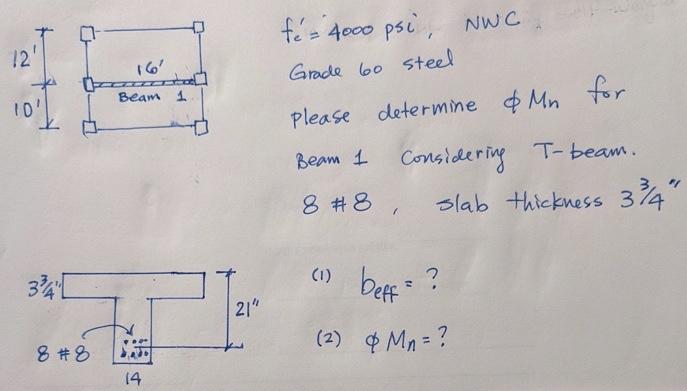 12'
10'
16'
Beam 1
f'c = 4000 psi, NWC.
Grade 60 steel
please determine φ Mn for
Beam 1 Considering T-beam.
8 #8, slab thickness 3 3/4"
3 3/4"
21"
8 #8
14
(1) beff = ?
(2) φ Mn = ?